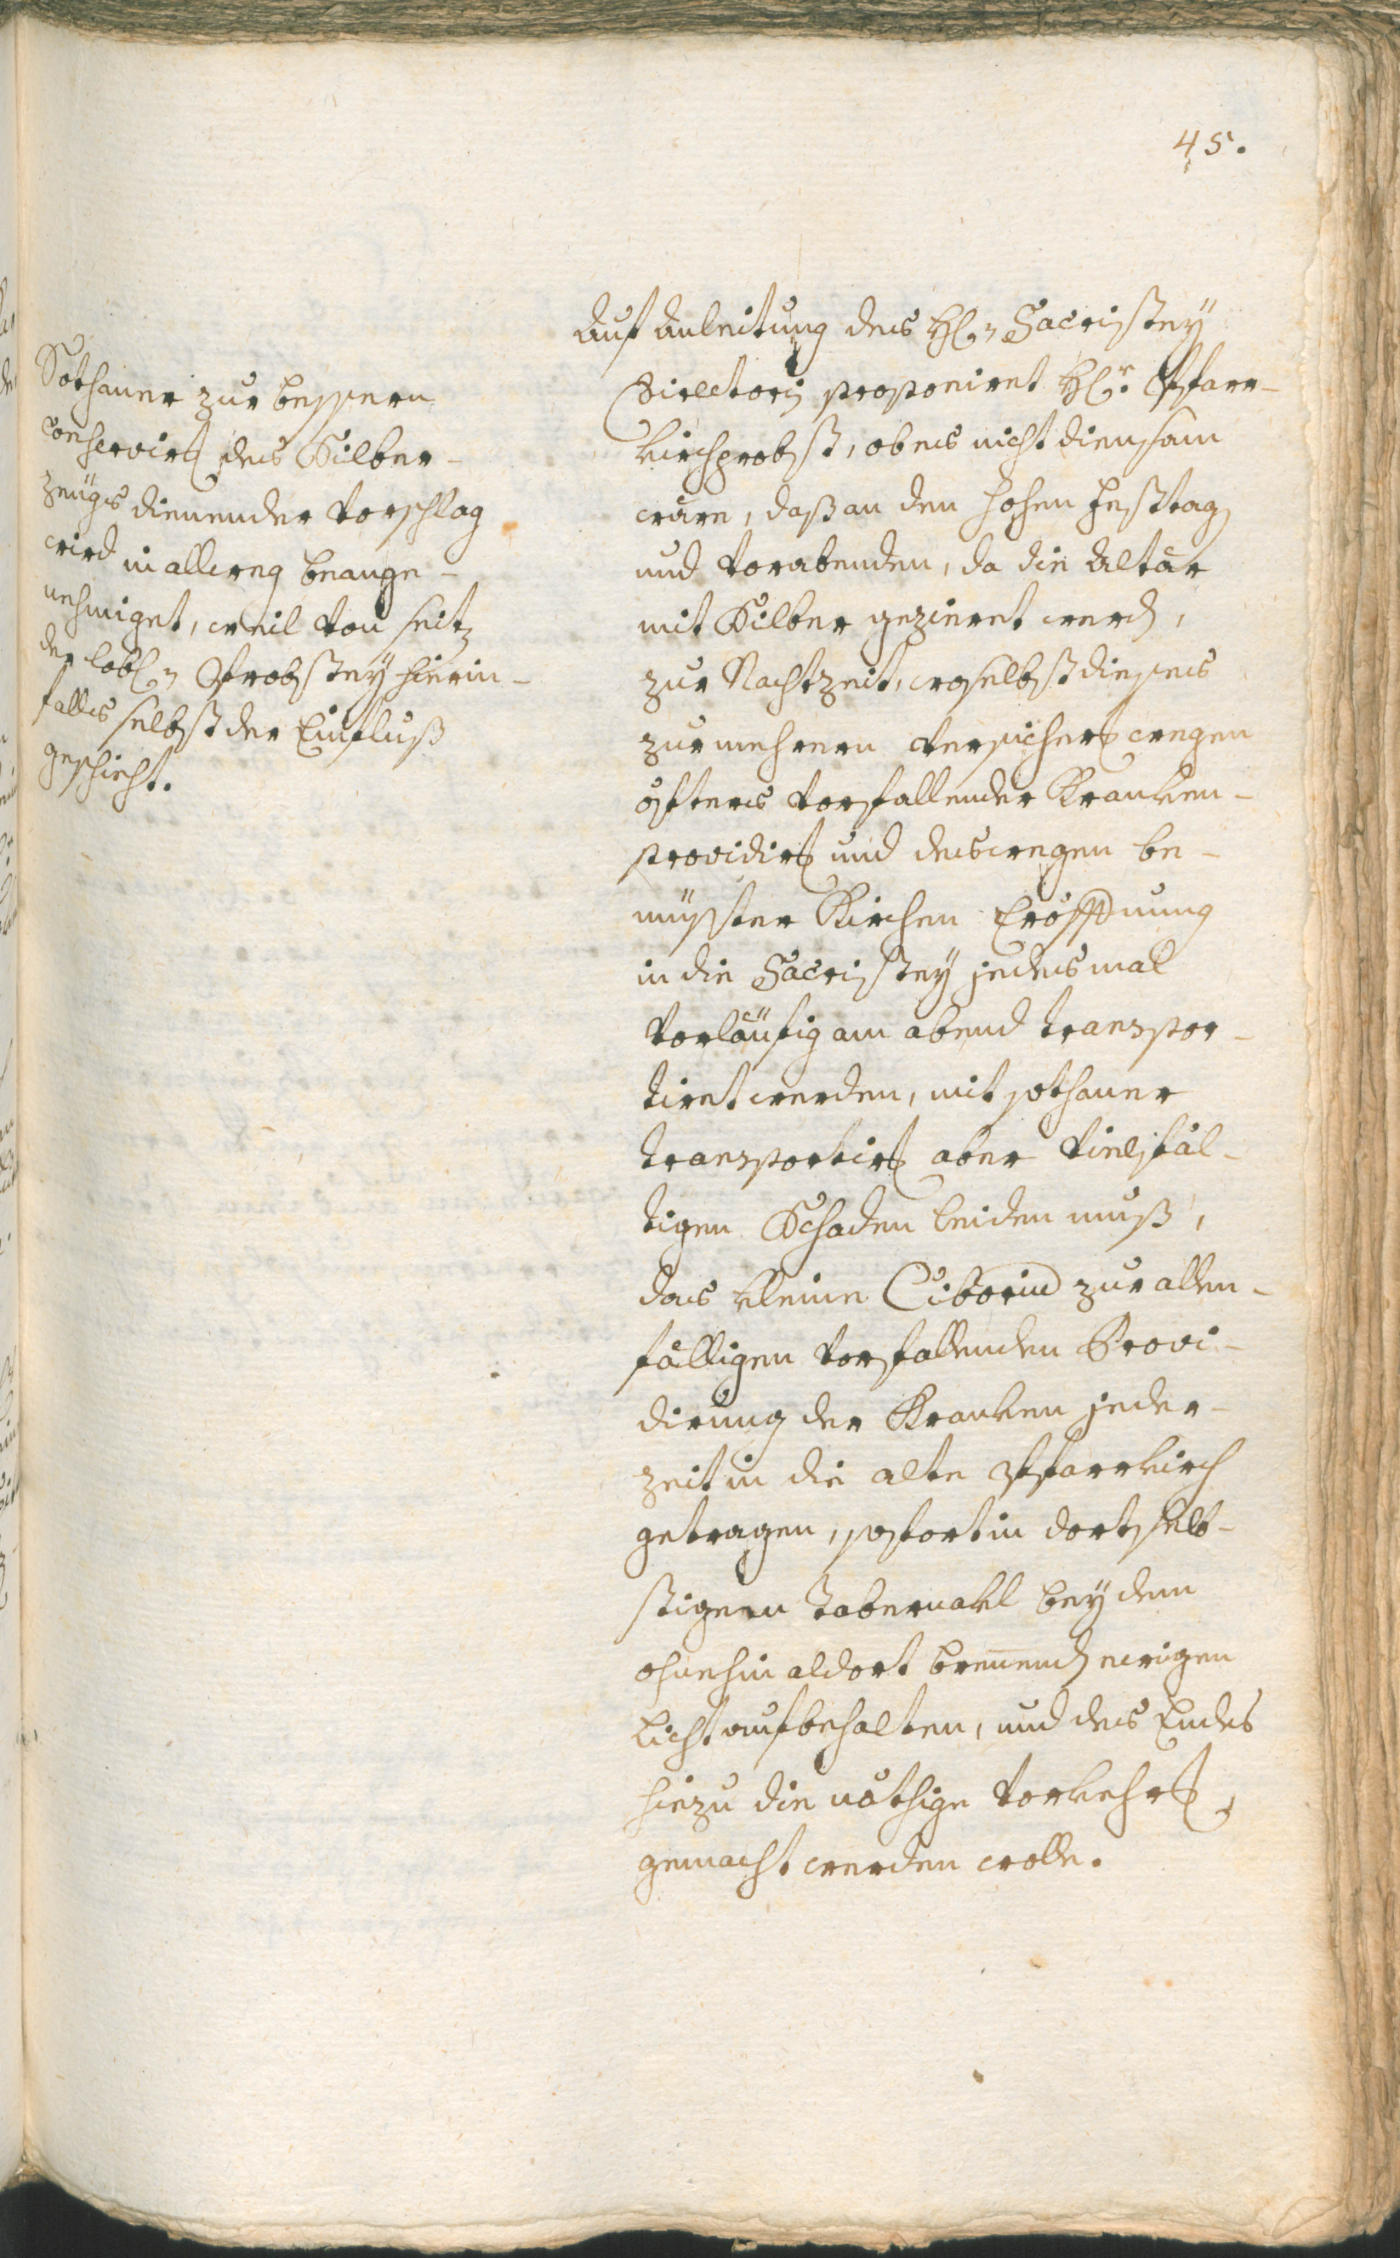 45.
Sothaner zur bessern
conservirung des Silber-
zeugs dienender Vorschlag
wird in allweg beange-
nehmiget, weil von seit
der lobl. Probstey hierin-
falls selbst der Einfluß
geschieht.
Auf Anleitung des H. Sacristey
Directors proponiret H.r Pfarr-
kirchprobst, ob es nicht diensam
wäre, daß an den hohen Festtag
und Vorabenden, da die Altär
mit Silber gezieret werd,
zur Nachtzeit, woselbst dieses
zur mehrern versicherung wegen
öfters vorfallender Kranken-
providirung und deswegen be-
müsster Kirchen Eröffnung
in die Sacristey jedesmal
vorläufig am abend transpor-
tiret werden, mit sothaner
transportirung aber vielfäl-
tigen Schaden leiden muß,
das kleine Ciborium zur allen-
fälligen vorfallenden Provi-
dirung der Kranken jeder-
zeit in die alte Pfarrkirch
getragen, sofort in dortselb-
stigem Tabernakl bey dem
ohnehin aldort brennend ewigen
Licht aufbehalten, und des Endes
hiezu die nöthige Vorkehrung
gemacht werden wolle.